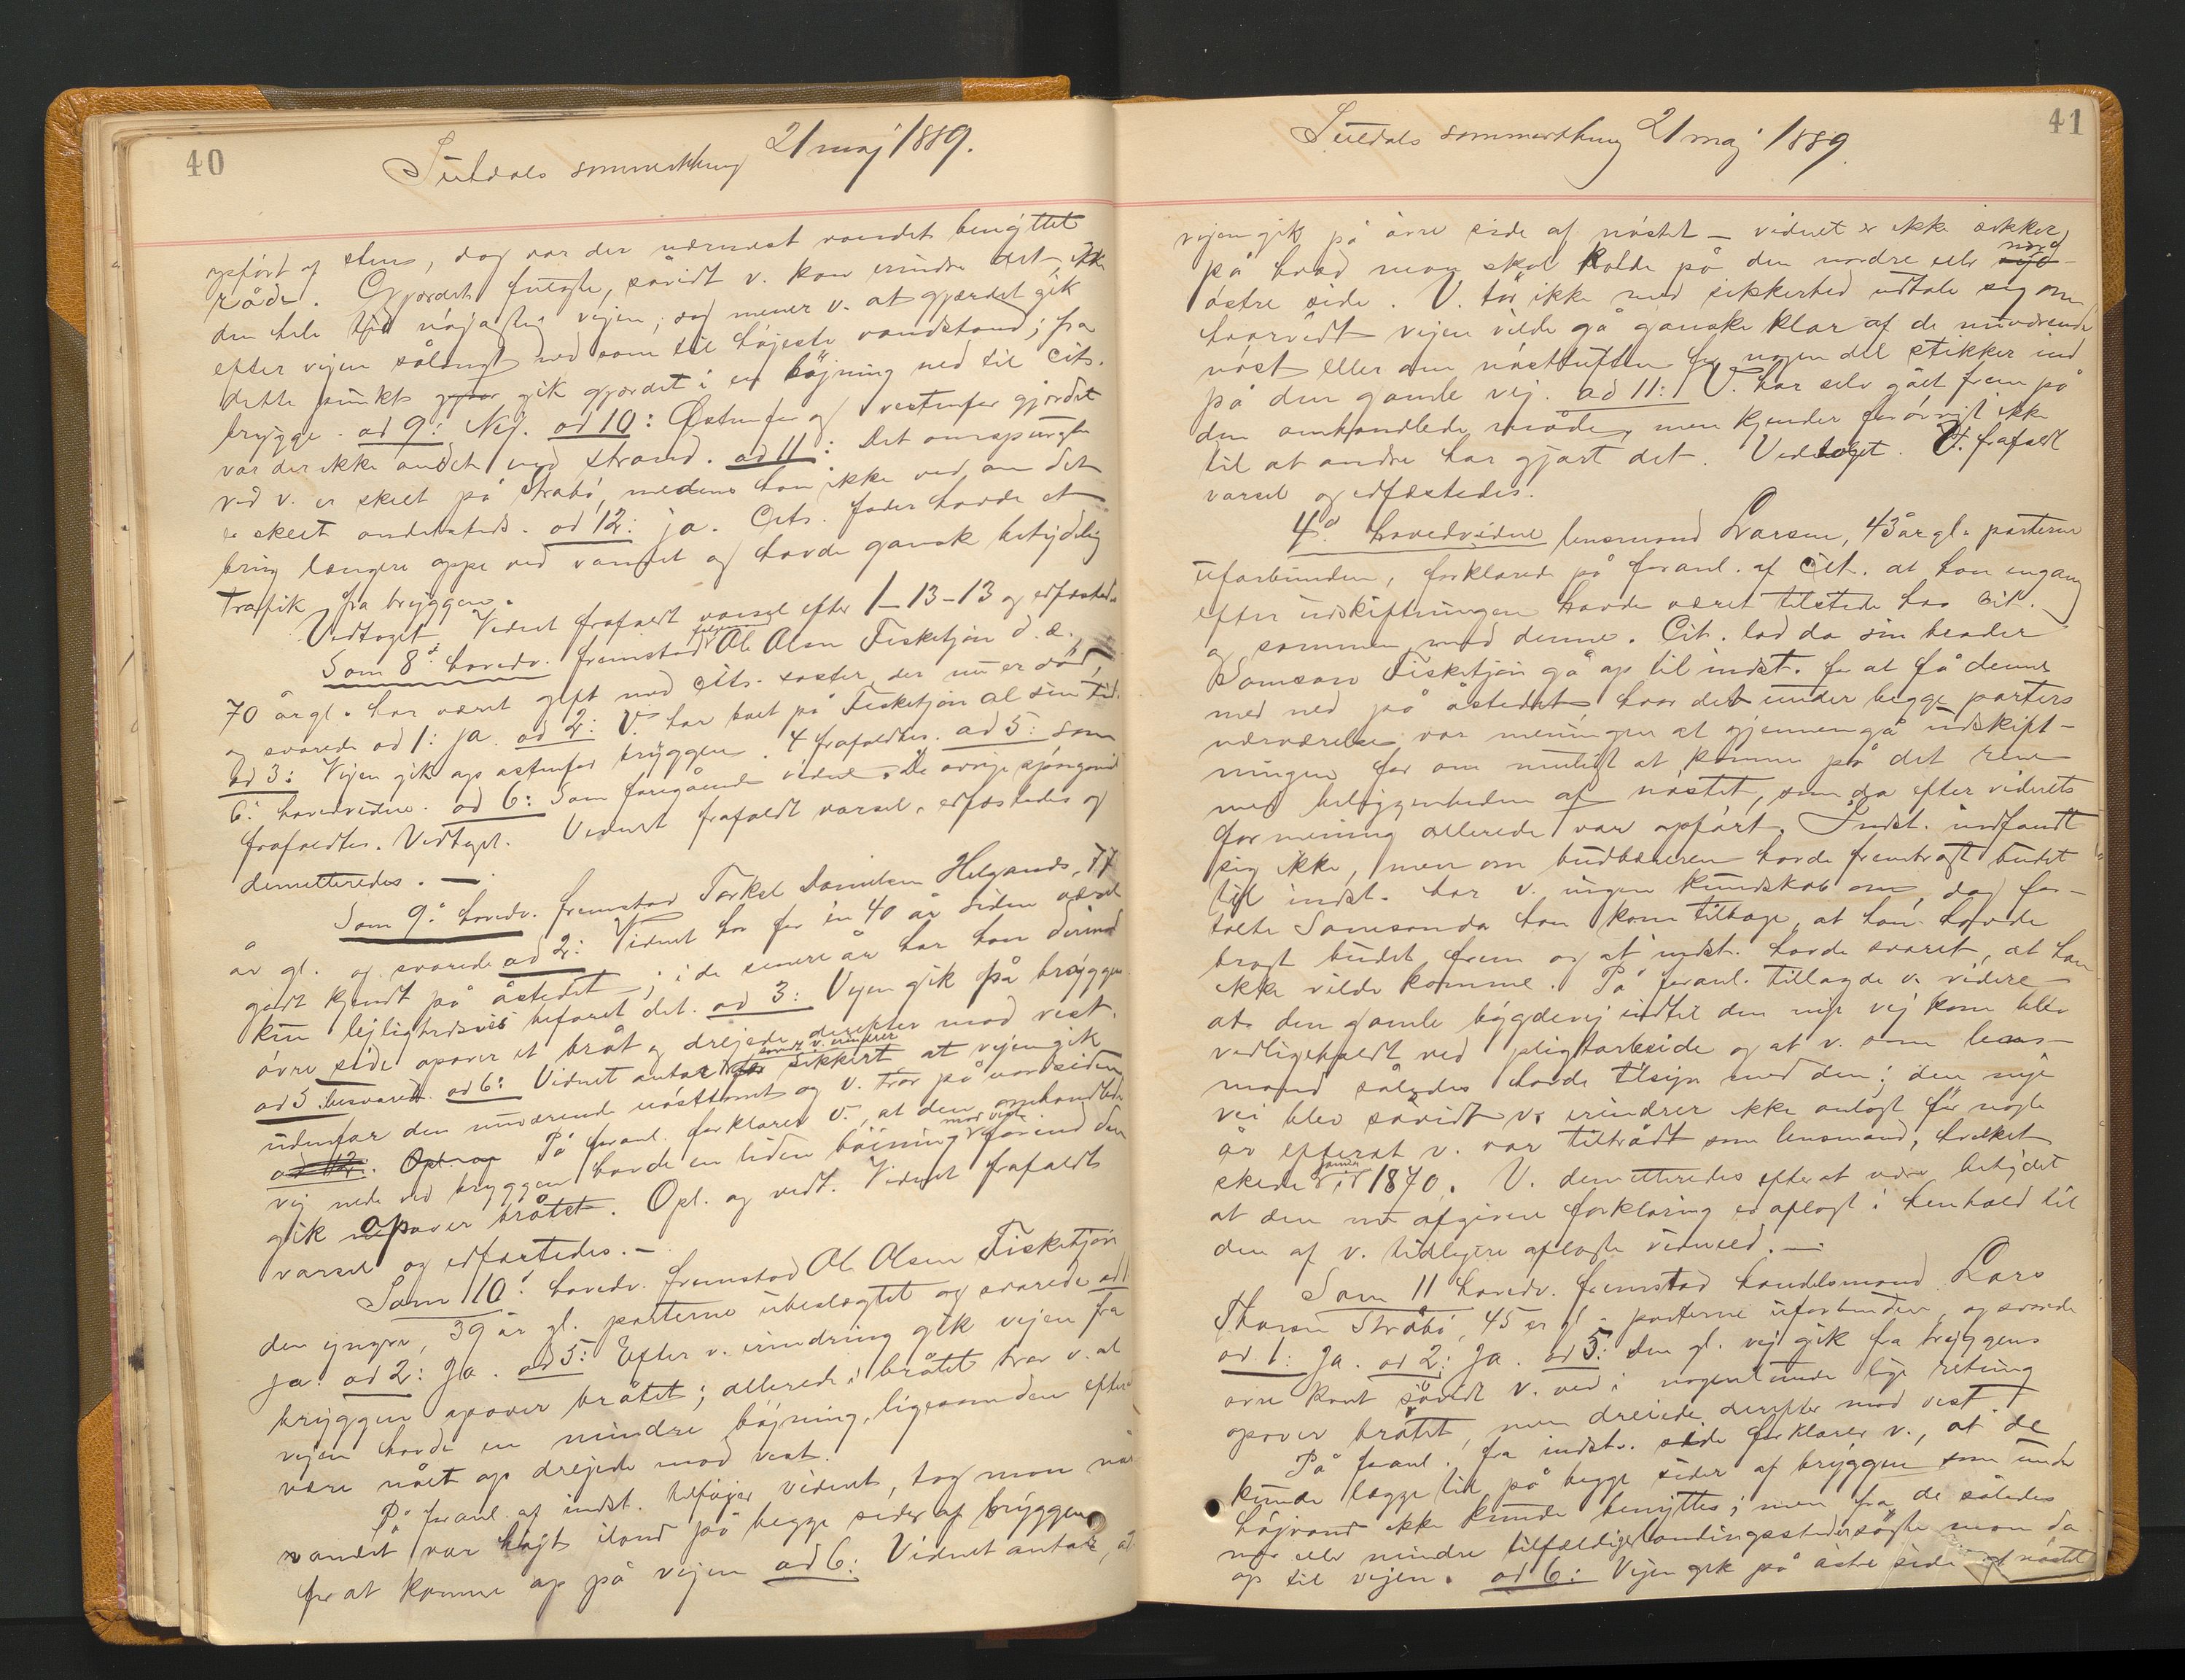 40
Suldals sommerthing 21 maj 1889.
opført af sten, dog var der nærmest vandet benyttet
råde. Gjærdet fulgte, såvidt v. kan erindre det ikke
den hele tid nøjagtig vejen, dog mener v. at gjærdet gik
efter vejen sålangt ned som til højeste vandstand; fra
dette punkt gik gjærdet i en bøjning ned til cits.
brygge. ad 9: Nej. ad 10: Østenfor og vestenfor gjærdet
var der ikke andet end strand. ad 11: Det omspurgte
ved v. er skeet på Strabø, medens han ikke ved om det
er skeet andetsteds. ad 12: ja. Cits. fader havde et
længere oppe ved vandet og havde gansk betydelig
trafik fra bryggen.
Vedtaget. Vidnet frafaldt varsel efter 1-13-13 og edfæstedes
Som 8d hovedv. fremstod Ole Olsen Fisketjøn d. æ.
70 år gl. har været gift med cits. søster, der nu er død,
og svarede ad 1: ja. ad 2: V. har boet på Fisketjøn al sin tid.
ad 3: Vejen gik op østenfor bryggen. 4 frafaldtes. ad 5: som
6. hovedvidne. ad 6: Som foregående vidne. De øvrige spørgsmål
frafaldtes. Vedtaget. Vidnet frafaldt varsel, edfæstedes og
demitteredes. —
Som 9d hovedv. fremstod Torkel Danielsen Helganes, 77
år gl. og svarede ad 2: Vidnet har for en 40 år siden været
godt kjendt på åstedet; i de senere år har han derimod
kun lejlighedsvis befaret det. ad 3: Vejen gik på bryggens
øvre side opover et bråt og drejede derefter mod vest.
ad 5 besvaret. ad 6: Vidnet antar som v. erindrer sikkert at vejen gik
udenfor den nuværende nøsttomt og v. tror på nordsiden
ad 12. Opl. og På foranl. forklarer v., at den omhandlede
vej nede ved bryggen havde en liden bøining mod vest førend den
gik opover bråtet. Opl. og vedt. Vidnet frafaldt
varsel og edfæstedes. —
Som 10d hovedv. fremstod Ole Olsen Fisketjøn
den yngre, 39 år gl. parterne ubeslægtet og svarede ad 1
ja. ad 2: Ja. ad 5: Efter v. erindring gik vejen fra
bryggen opover bråtet; allerede i bråtet tror v. at
vejen havde en mindre bøjning, ligesom den efter
være nået op drejede mod vest.
På foranl. af indst. tilføjer vidnet, tog man når
vandet var højt iland på begge sider af bryggen
for at komme op på vejen ad 6: Vidnet antar, at
41
Suldals sommerthing 21 maj 1889.
vejen gik på øvre side af nøstet — vidnet er ikke sikker
på hvad man skal kalde på den nordre eller nord
østre side. V. tør ikke med sikkerhed udtale sig om
hvorvidt vejen vilde gå ganske klar af de nuværende
nøst eller om nøsttuften for nogen del stikker ind
på den gamle vej. ad 11: V. har selv gået frem på
den omhandlede måde, men kjender forøvrigt ikke
til at andre har gjort det. Vedtaget. V. frafaldt
varsel og edfæstedes.
4d hovedvidne lensmand Larsen, 43 år gl. parterne
uforbunden, forklarede på foranl. af cit. at han engang
efter udskiftningen havde været tilstede hos cit.
og sammen med denne. Cit. lod da sin broder
Samson Fisketjøn gå op til indst. for at få denne
med ned på åstedet, hvor det under begge parters
nærværelse var meningen at gjennemgå udskift-
ningen for om muligt at komme på det rene
med beliggenheden af nøstet, som da efter vidnets
formening allerede var opført. Indst. indfandt
sig ikke, men om budbæreren havde frembragt budet
til indst. har v. ingen kundskab om, dog for-
talte Samson da han kom tilbage, at han havde
bragt budet frem og at indst. havde svaret, at han
ikke vilde komme. På foranl. tillagde v. videre
at den gamle bygdevej indtil den nye vej kom blev
vedligeholdt ved pligtarbeide og at v. som lens-
mand således havde tilsyn med den; den nye
vei blev såvidt v. erindrer ikke anlagt før nogle
år efterat v. var tiltrådt som lensmand, hvilket
skede i januar 1870. V. demitteredes efter at være betydet
at den nu afgivne forklaring er aflagt i henhold til
den af v. tidligere aflagte vidneed. —
Som 11 hovedv. fremstod handelsmand Lars
Thorsen Stråbø, 45 år gl. parterne uforbunden, og svarede
ad 1: Ja. ad 2: Ja. ad 5: Den gl. vej gik fra bryggens
øvre kant såvidt v. ved i nogenlunde lige retning
opover bråtet, men dreiede derefter mod vest.
På foranl. fra indst. side forklarer v., at de
kunde lægge til på begge sider af bryggen som under
højvand ikke kunde benyttes; men fra de således
mer eller mindre tilfældige landingssteder søgte man da
op til vejen. ad 6: Vejen gik på østre side af nøstet